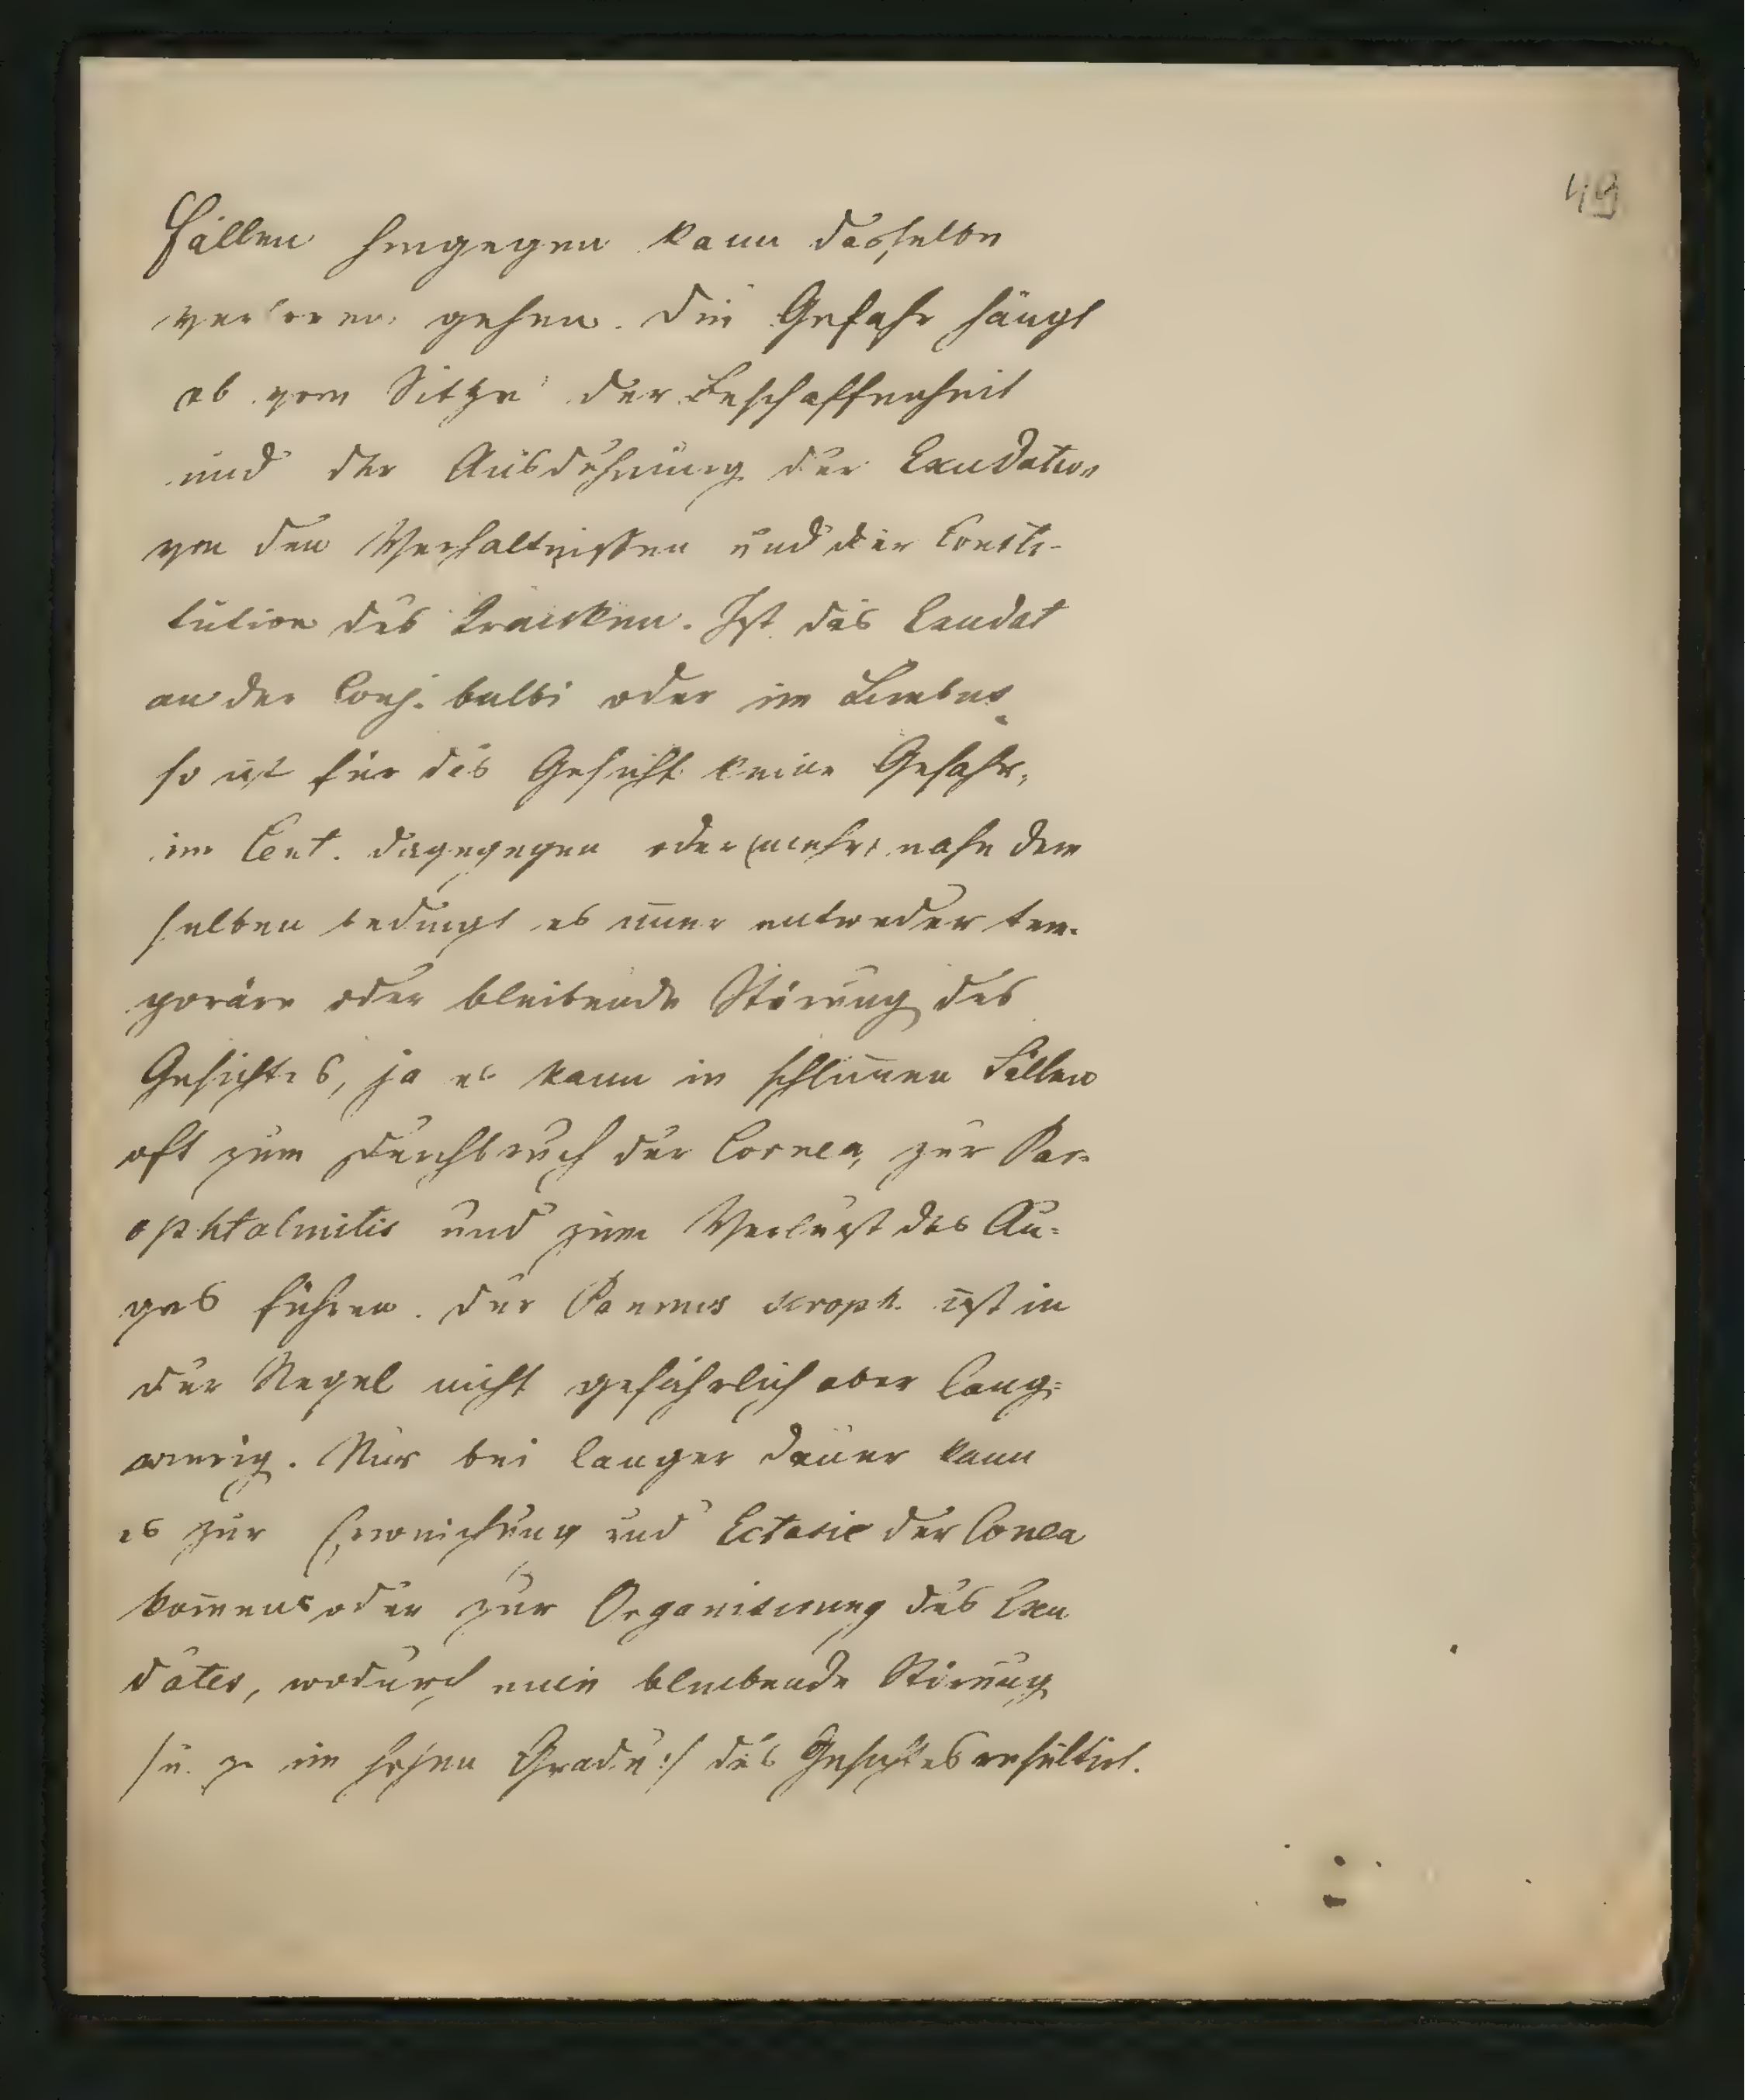 49
Fällen hingegen kann dasselbe
verloren gehen. Die Gefahr hängt
ab vom Sitze der Beschaffenheit
und der Ausdehnung der Exudation
von den Verhältnissen und der Consti-
tution des Kranken. Ist das Exudat
an der Conj. bulbi oder im Limbus
so ist für das Gesicht keine Gefahr,
im Cent. dagegegen oder mehr nahe dem
selben bedingt es im̅er entweder tem-
poräre oder bleibende Störung des
Gesichtes, ja es kann in schlim̅en Fällen
oft zum Durchbruch der Cornea, zur Pan-
ophtalmitis und zum Verlust des Au-
ges führen. Der Pannus scroph. ist in
der Regel nicht gefährlich aber lang-
wierig. Nur bei langer Dauer kann
es zur Erweichung und Ectasie der Conea
kom̅en oder zur Organisirung des Exu
dates, wodurch eine bleibende Störung
/u. z. im hohen Grade:/ des Gesichtes resultirt.